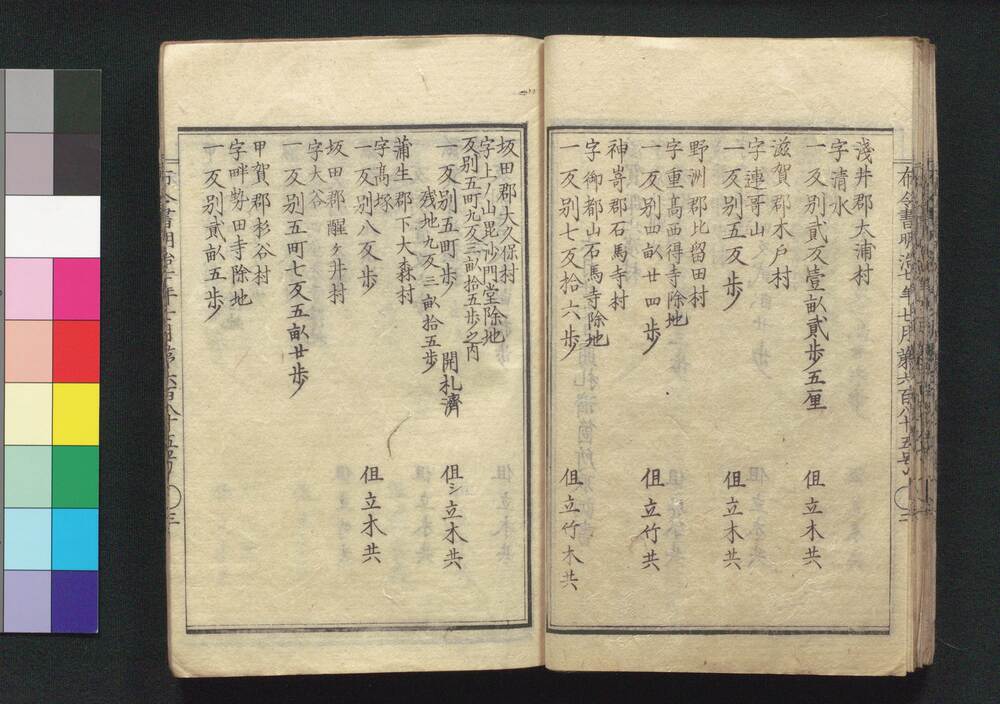 淺井郡大浦村
字清水
一 反別貳反壹畝貳歩五厘 但立木共
滋賀郡木戸村
字連哥山
一 反別五反歩 但立木共
野洲郡比留田村
字重高西得寺除地
一 反別四畝廿四歩 但立竹共
神嵜郡石馬寺村
字御都山石馬寺除地
一 反別七反拾六歩 但立竹木共
布令書明治七年七月第六百八十五号 三
坂田郡大久保村
字上ノ山毘沙門堂除地
反別五町九反三畝拾五歩之内
一 反別五町歩 開札濟 但シ立木共
残地九反三畝拾五歩
蒲生郡下大森村
字髙塚
一 反別八反歩 但立木共
坂田郡醒ヶ井村
字大谷
一 反別五町七反五畝廿歩
甲賀郡杉谷村
字畔㔟田寺除地
一 反別貳畝五歩